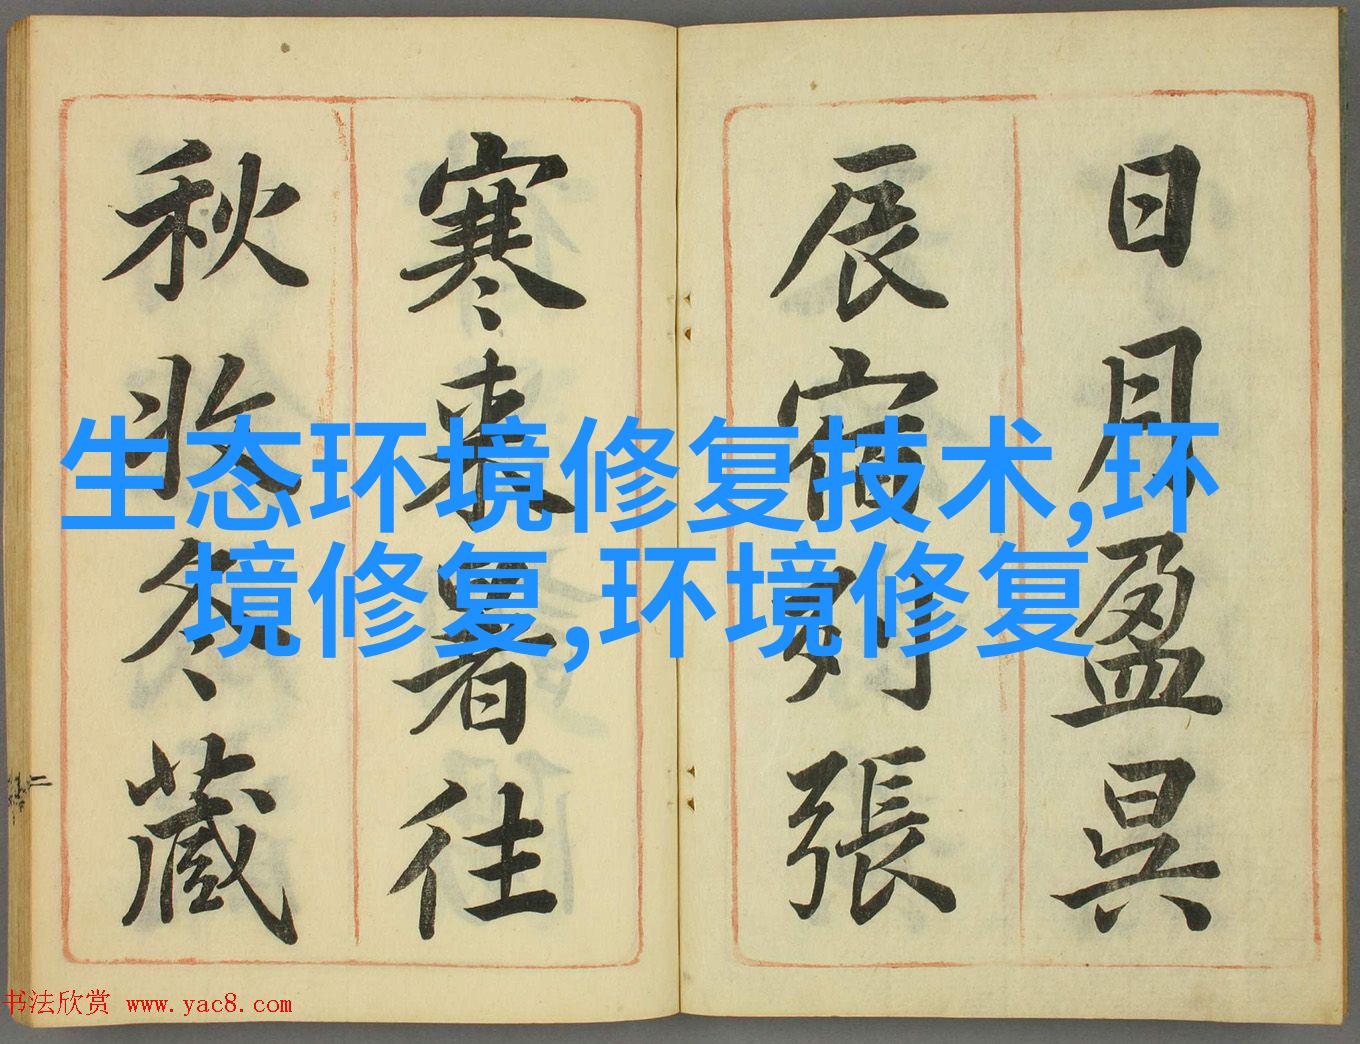 日月盈昃
辰宿列張
寒來暑往
秋收冬藏
生态环境修复技术,环
境修复,环境修复
书法欣赏 www.yac8.com